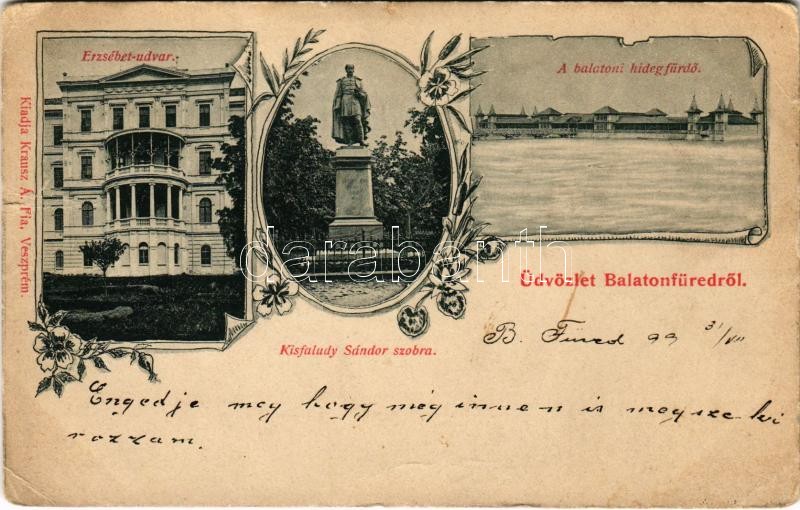 Erzsébet-udvar.
A balatoni hidegfürdő.
Kiadja Krausz Á. Fia, Veszprém.
darabanth
Üdvözlet Balatonfüredről.
Kisfaludy Sándor szobra.
B. Füred 99 31/VII
Engedje meg hogy még innen is megszeki
rozzam.